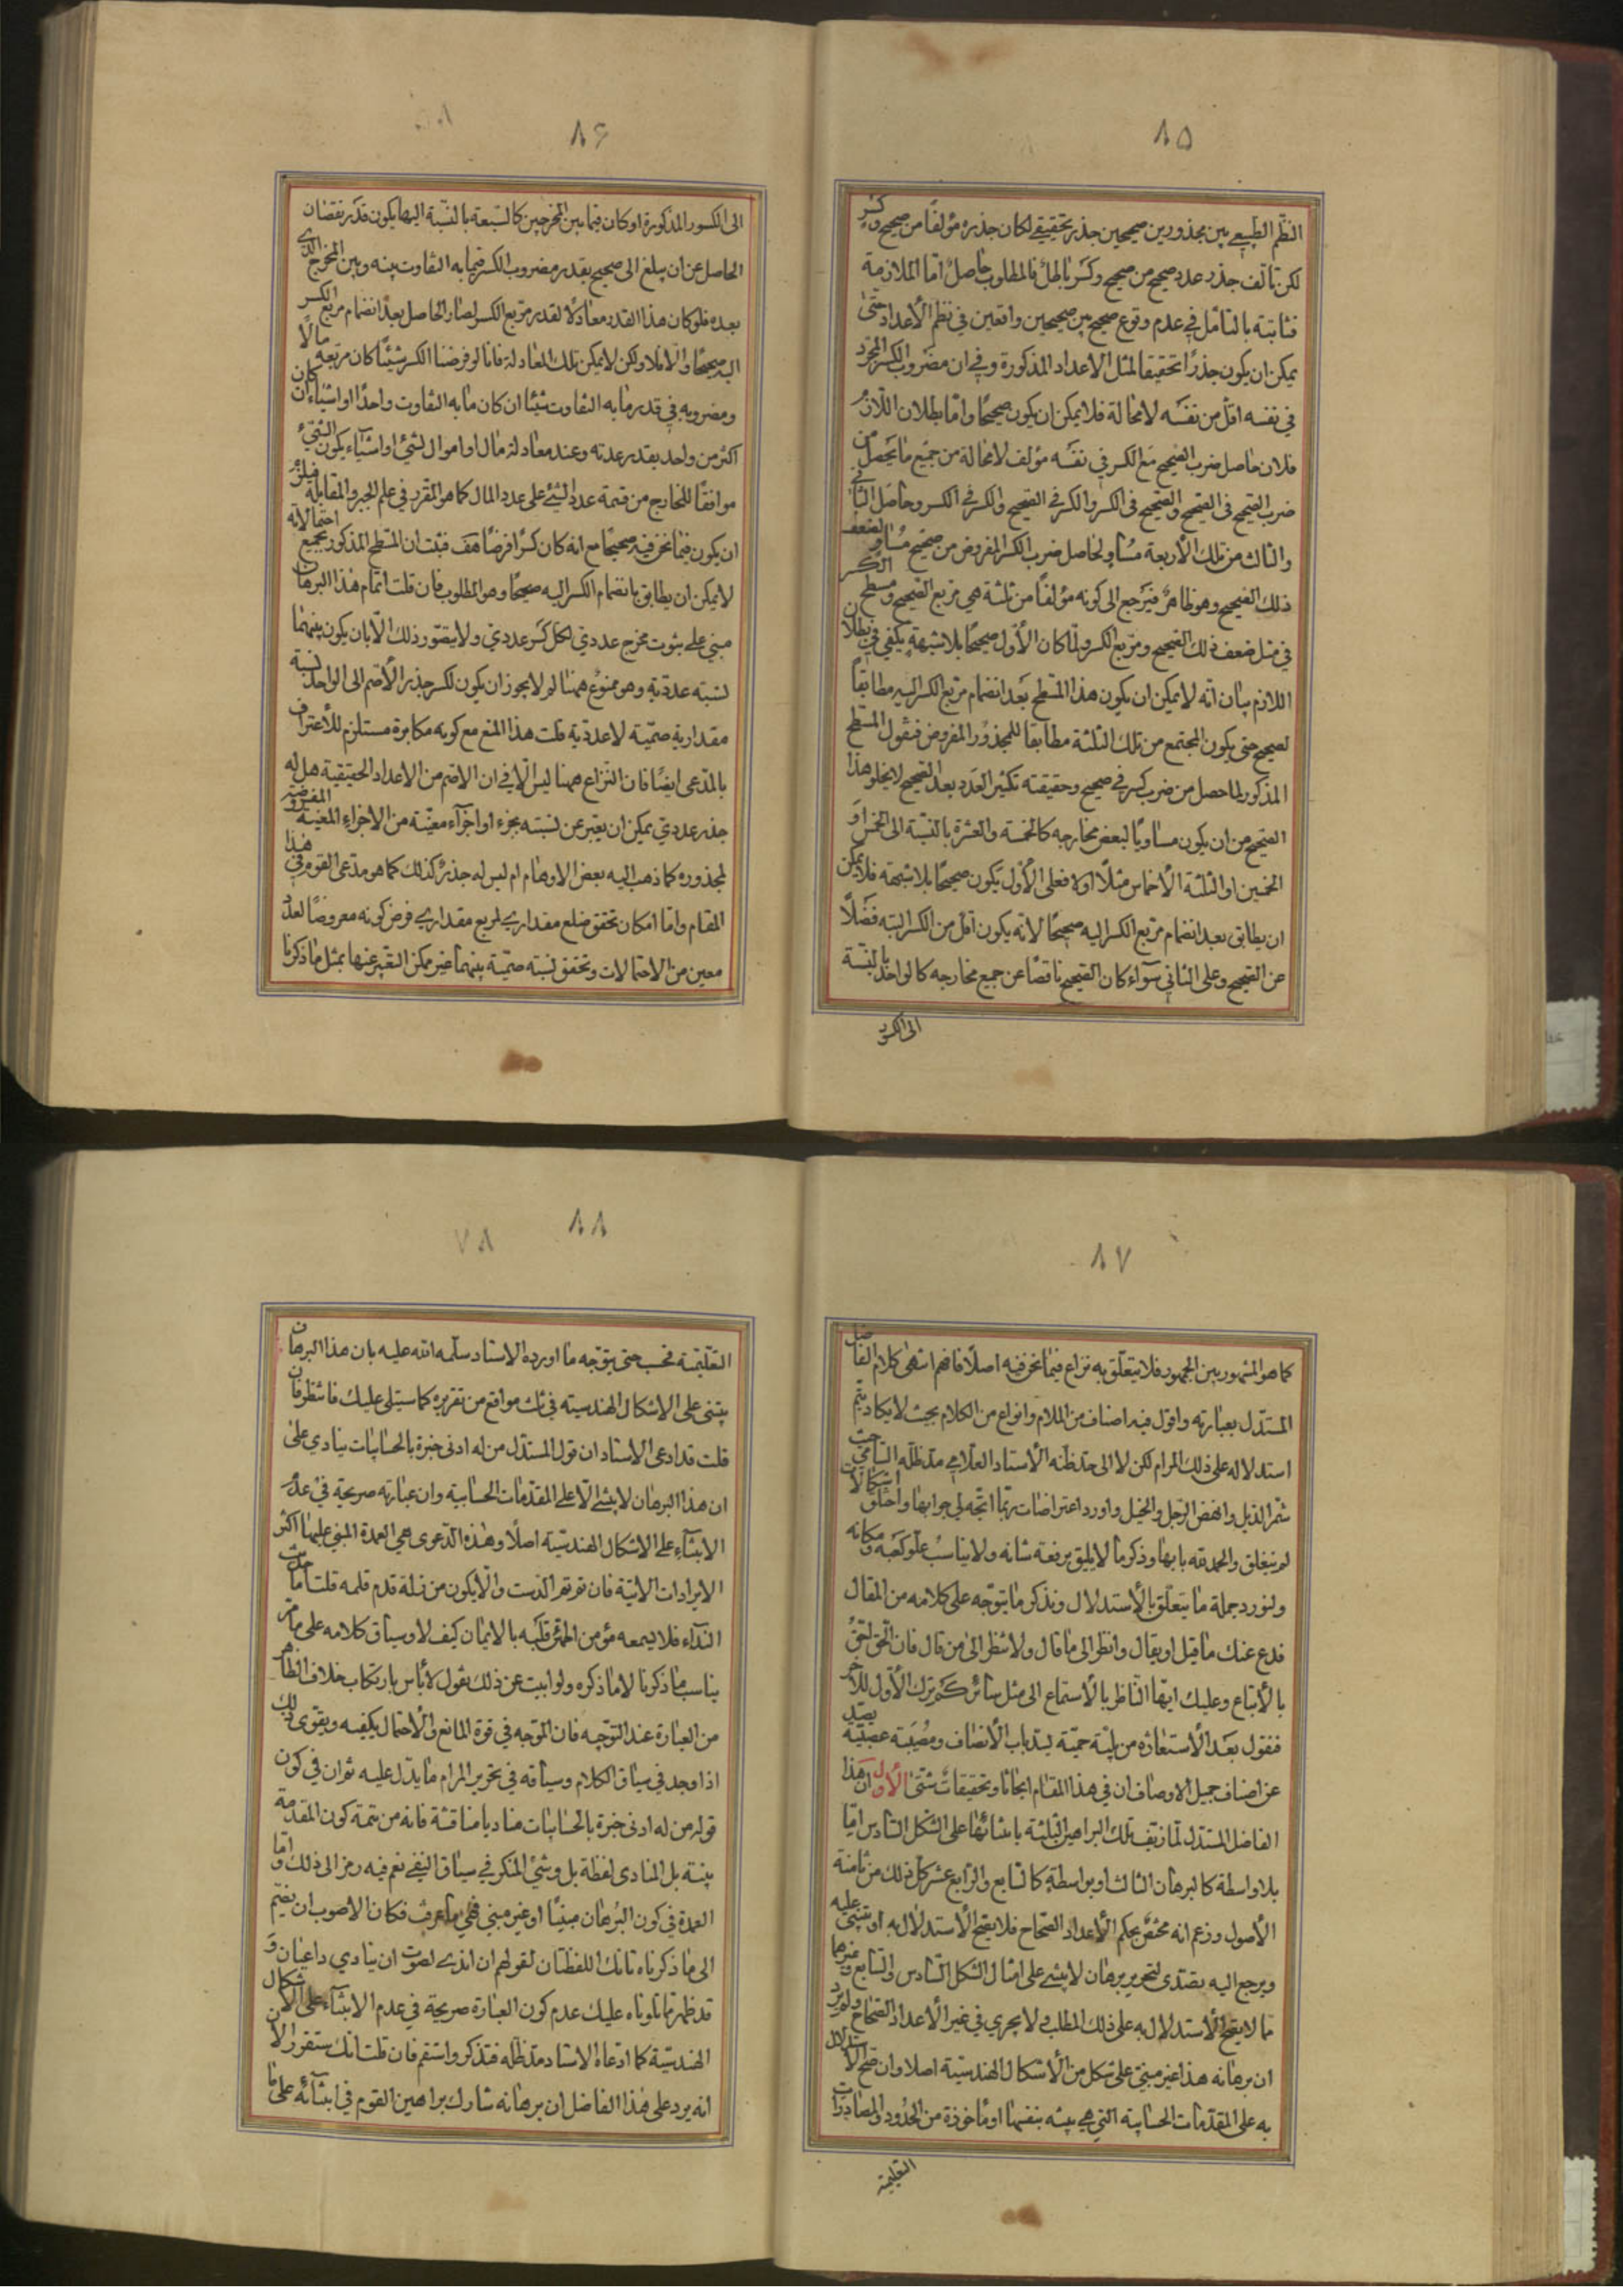 ٨۵
النظم الطبيعي بين مجذورين صحيحين جذر تحقيقي لكان جذره مؤلفا من صحيح وكسر
لكن تألف جذر عدد صحيح من صحيح وكسر باطل فالمطلوب حاصل أما الملازمة
فثابتة بالتأمل في عدم وقوع صحيح بين صحيحين واقعين في نظم الأعداد حتى
يمكن ان يكون جذرا تحقيقا لمثل الاعداد المذكورة وفي ان مضروب الكسر المجرد
في نفسه اقل من نفسه لا محالة فلا يمكن ان يكون صحيحا واما بطلان اللازم
فلان حاصل ضرب الصحيح مع الكسر في نفسه مؤلف لا محالة من جميع ما يحصل من
ضرب الصحيح فى الصحيح والصحيح فى الكسر والكسر في الصحيح والكسر في الكسر وحاصل الثاني
والثالث من تلك الأربعة مساو لحاصل ضرب الكسر المفروض من صحيح مساو لضعف
ذلك الصحيح وهو ظاهر فيرجع الى كونه مؤلفا من ثلثة هي مربع الصحيح ومسطح الكسر
في مثل ضعف ذلك الصحيح ومربع الكسر ولما كان الأول صحيحا بلا شبهة يكفي في بطلان
اللازم بيان انه لا يمكن ان يكون هذا المسطح بعد انضمام مربع الكسر اليه مطابقا
لصحيح حتى يكون المجتمع من تلك الثلثة مطابقا للمجذور المفروض فنقول المسطح
المذكور لما حصل من ضرب كسر في صحيح وحقيقته تكثير العدد بعد الصحيح لا يخلو هذا
الصحيح من ان يكون مساويا لبعض مخارجه كالخمسة والعشرة بالنسبة الى الخمس او
الخمسين او الثلثة الأخماس مثلا او لا فعلى الأول يكون صحيحا بلا شبهة فلا يمكن
ان يطابق بعد انضمام مربع الكسر اليه صحيحا لانه يكون اقل من الكسر البتة فضلا
عن الصحيح وعلى الثاني سواء كان الصحيح ناقصا عن جميع مخارجه كالواحد بالنسبة
الى الكسور
٨۶
الى الكسور المذكورة او كان فيما بين المخرجين كالسبعة بالنسبة اليها يكون قدر نقصان
الحاصل عن ان يبلغ الى صحيح بقدر مضروب الكسر فيما به التفاوت بينه وبين المخرج الذي
بعده فلو كان هذا القدر معادلا لقدر مربع الكسر لصار الحاصل بعد انضمام مربع الكسر
اليه صحيحا والا فلا ولكن لا يمكن تلك المعادلة فانا لو فرضنا الكسر شيئا كان مربعه مالا
ومضروبه في قدر ما به التفاوت شيئا ان كان ما به التفاوت واحدا او اشياء ان كان
اكثر من واحد بقدر عدته وعند معادلة مال او اموال لشئ او اشياء يكون الشئ
موافقا للخارج من قسمة عدد الشئ على عدد المال كما هو المقرر في علم الجبر والمقابلة فيلزم
ان يكون فيما نحن فيه صحيحا مع انه كان كسرا فرضا هف فثبت ان المسطح المذكور بجميع احتمالاته
لا يمكن ان يطابق بانضمام الكسر اليه صحيحا وهو المطلوب فان قلت اتمام هذا البرهان
مبني على ثبوت مخرج عددي لكل كسر عددي ولا يتصور ذلك الا بان يكون بينهما
نسبة عددية وهو ممنوع ههنا لم لا يجوز ان يكون لكسر جذر الأصم الى الواحد نسبة
مقدارية صمية لا عددية قلت هذا المنع مع كونه مكابرة مستلزم للأعتراف
بالمدعى ايضا فان النزاع ههنا ليس الا في ان الاصم من الاعداد الحقيقية هل له
جذر عددي يمكن ان يعبر عن نسبته بجزء او اجزاء معينة من الاجزاء المعينة المفروضة
لمجذوره كما ذهب اليه بعض الاوهام ام ليس له جذر كذلك كما هو مدعى القوم في هذا
المقام واما امكان تحقق ضلع مقداري لمربع مقداري فرض كونه معروضا لعدد
معين من الاحتمالات وتحقق نسبة صمية بينهما غير ممكن التعبير عنها بمثل ما ذكرنا
٨٧
كما هو المشهور بين الجمهور فلا يتعلق به نزاع فيما نحن فيه اصلا فافهم انتهى كلام الفاضل
المستدل بعبارته واقول فيه اصناف من الملام وانواع من الكلام بحيث لا يكاد يتم
استدلاله على ذلك المرام لكن لا الى حد ظنه الأستاد العلامي مد ظله السامي حيث
شمر الذيل وانهض الرجل والخيل واورد اعتراضات ربما اتجه لي جوابها واختلق اشكالات
لم ينغلق والحمد لله بابها وذكر ما لا يليق برفعة شانه ولا يناسب علو كعبه ومكانه
ولنورد جملة ما يتعلق بالأستدلال ونذكر ما يتوجه على كلامه من المقال
فدع عنك ما قيل او يقال وانظر الى ما قال ولا تنظر الى من قال فان الحق احق
بالأتباع وعليك ايها الناظر بالأستماع الى مثل سائر كم ترك الأول للآخر
فنقول بعد الأستعاذة من بلية حمية ليد باب الأنصاف ومصيبة عصبية يصد
عن اصناف جميل الاوصاف ان في هذا المقام ابحاثا وتحقيقات شتى الأول ان هذا
الفاضل المستدل لما زيف تلك البراهين الثلثة بابتنائها على الشكل السادس اما
بلا واسطة كالبرهان الثالث او بواسطة كالسابع والرابع عشر كل ذلك من ثامنة
الأصول وزعم انه مختص بحكم الأعداد الصحاح فلا يصح الأستدلال به او يبتنى عليه
ويرجع اليه تصدى لتحرير برهان لا يبتني على امثال الشكل السادس والسابع وغيرهما
مما لا يصح الأستدلال به على ذلك المطلب ولا يجري في غير الأعداد الصحاح ولم يرد
ان برهانه هذا غير مبني على شكل من الأشكال الهندسية اصلا وان صح الأستدلال
به على المقدمات الحسابية التي هي بينة بنفسها او مأخوذة من الحدود والمصادرات
التعليمية
٨٨
التعليمية فحسب حتى يتوجه ما اورده الاستاد سلمه الله عليه بان هذا البرهان
يبتنى على الاشكال الهندسية في ثلث مواقع من تقريره كما سيتلى عليك فانتظر فان
قلت قد ادعى الاستاد ان قول المستدل من له ادنى خبرة بالحسابيات ينادي على
ان هذا البرهان لا يبتنى الا على المقدمات الحسابية وان عبارته صريحة في عدم
الابتناء على الاشكال الهندسية اصلا وهذه الدعوى هي العمدة المبني عليها اكثر
الايرادات الاتية فان تم تم الدست والا يكون من زلة قدم قلمه قلت اما حديث
النداء فلا يسمعه مؤمن اطمئن قلبه بالايمان كيف لا وسياق كلامه على ما مر
يناسب ما ذكرنا لا ما ذكره ولو ابيت عن ذلك نقول لا بأس بارتكاب خلاف الظاهر
من العبارة عند التوجيه فان الموجه في قوة المانع والأحتمال يكفيه ويقوى ذلك
اذا وجد في سياق الكلام وسياقه في تحرير المرام ما يدل عليه ثم ان في كون
قوله من له ادنى خبرة بالحسابيات مناديا مناقشة فانه من تتمة كون المقدمة
بينة بل المنادى لفظة بل وشئ المنكر في سياق النفي نعم فيه رمز الى ذلك واما
العمدة في كون البرهان مبنيا او غير مبني فهي ما عرفت فكان الاصوب ان يضم
الى ما ذكرناه تانك اللفظتان لقولهم ان اندى لصوت ان ينادي داعيان و
قد ظهر مما تلوناه عليك عدم كون العبارة صريحة في عدم الابتناء على الاشكال
الهندسية كما ادعاه الاستاد مد ظله فتذكر واستقم فان قلت انك ستقرر الآن
انه يرد على هذا الفاضل ان برهانه شارك براهين القوم في ابتنائه على ما